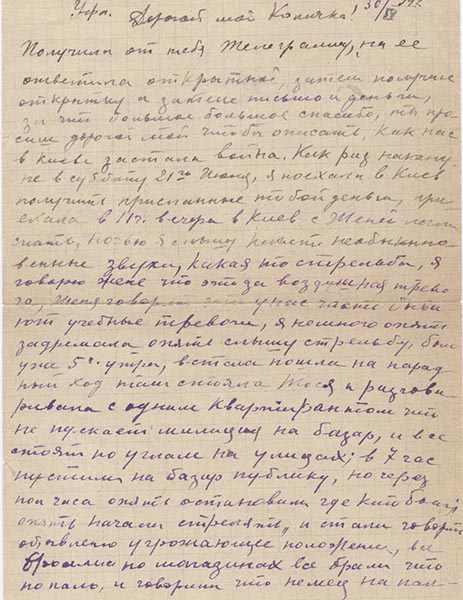 Уфа. 30/V 1942
Дорогой мой Количка!
Получила от тебя телеграмму, на ее
ответила открыткой, затем получила
открытку а затем письмо и деньги,
за что большое большое спасибо, ты про-
сиш дорогой мой чтобы описать, как нас
в Киеве застала война. Как раз накану-
не в субботу 21го Июня, я поехала в Киев
получить присланные тобой деньги, при
ехала в 11 ч. вечера в Киев с Женей легли
спать, ночью я слышу необыкно-
венные звуки, какая то стрельба, я
говорю Жене что это за воздушная трево
га, Женя говорит у нас часто быва
ют учебные тревоги, я немного опять
задремала опять слышу стрельбу, был
уже 5 ч. утра, встала пошла на парад
ный ход там стояла Тося и разгова
ривала с одним квартирантом что
не пускает милиция на базар, и все
стоят по углам на улицах; в 7 час
пустили на базар публику, но через
пол часа опять остановили где кто был,
опять начали стрелять, и стали говорит
объявлено угрожающее положение, все
бросились по магазинах все брали что
попало, и говорили что немец на пал-